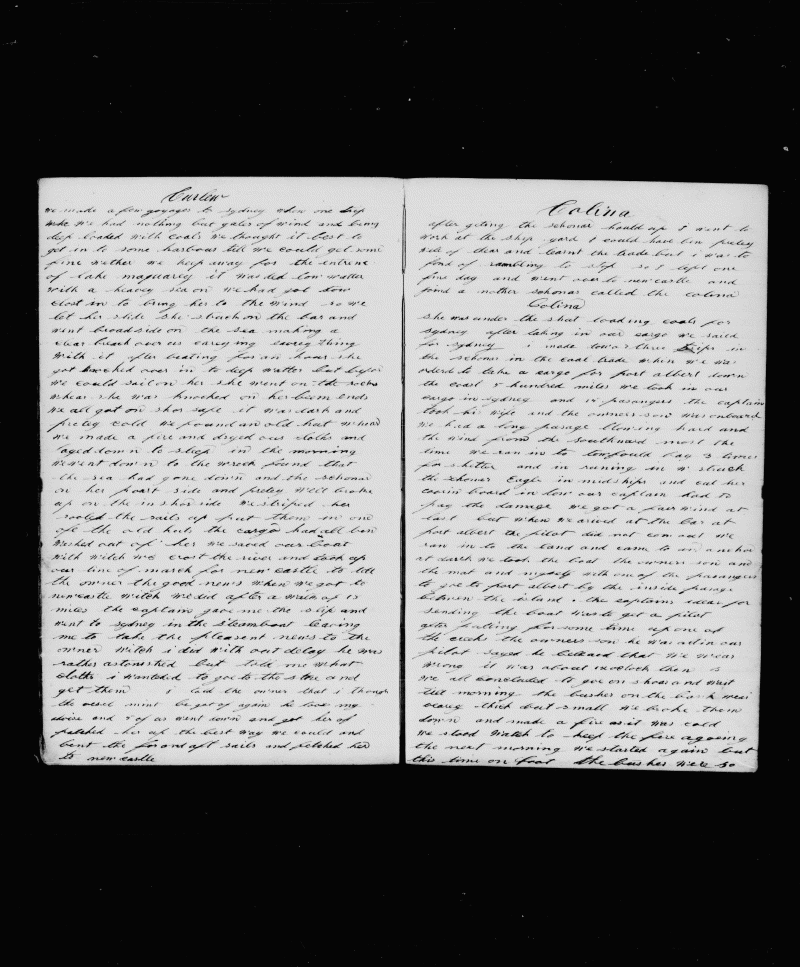 Curlew
we made a few voyages to sydney when one trip
we had nothing but gales of wind and being
deep loaded with coals we thought it best to
get in to some harbour till we could get some
fine wether we keep away for the entrence
of lake maquarey it was ded low watter
with a heavey sea on we had got too
clost in to bring her to the wind so we
let her slide she struck on the bar and
went broad side on the sea making a
clear breach over us careying everey thing
with it after beating for an hour she
got knocked over in to deep watter but before
we could sail on her she went on the rocks
whear she was knocked on her beem ends
we all got on shor safe it was dark and
pretey cold we found an old hut whear
we made a fire and dryed our cloths and
layed down to sleep in the morning
we went down to the wreck found that
the sea had gone down and the schonar
on her poart side and pretey well broke
up on the in shor side we striped her
rooled the sails up put them in one
of the old huts the cargo had all ben
washed out of her we saved our boat
with witch we crost the river and took up
our line of march for new castle to tell
the owner the good news when we got to
newcastle witch we did after a walk of 15
miles the captain gave me the slip and
went to sydney in the steamboat leaving
me to take the pleasent news to the
owner witch i did with out delay he was
rather astonished but told me what
cloths i wanted to goe to the store and
get them i told the owner that i though
the vessel mint be got of again he took my
advise and 5 of us went down and got her of
patched her up the best way we could and
bent the for and aft sails and fetched her
to new castle
Colina
after geting the schonar hauld up i went to
work at the ship yard i could have ben pretey
well of thear and learnt the trade but i was to
fond of rambling to stop so i left one
fine day and went over to new castle and
found a nother schonar called the colina
Colina
she was under the shut loading coals for
sydney after taking in our cargo we saild
for sydney i made two or three trips in
the schonar in the coal trade when we was
orderd to take a cargo for port albert down
the coast 5 hundred miles we took in our
cargo in sydney and 12 pasangers the captain
took his wife and the owners son was onboard
we had a long pasage blowing hard and
the wind from the southward most the
time we ran in to towfould bay 3 times
for shelter and in runing in we struck
the schonar Eagle in midships and cut her
down our captain had to
pay the damage we got a fair wind at
last but when we arived at the bar at
port albert the pilot did not com out we
ran in to the land and came to an anchor
at dark we took the boat the owners son and
the mat and myself with one of the pasangers
to goe to port albert by the inside pasage
betwen the island the captains idear for
sending the boat was to get a pilot
after pulling for some time up one of
the creeks the owners son he was act in our
pilot sayed he beleaved that we wear
wrong it was about then
we all concluded to goe on shoar and wait
till morning the bushes on the bank wear
verey thick but small we broke them
down and made a fire as it was cold
we stood watch to keep the fire agoeing
the next morning we started again but
this time on foot the bushes were so